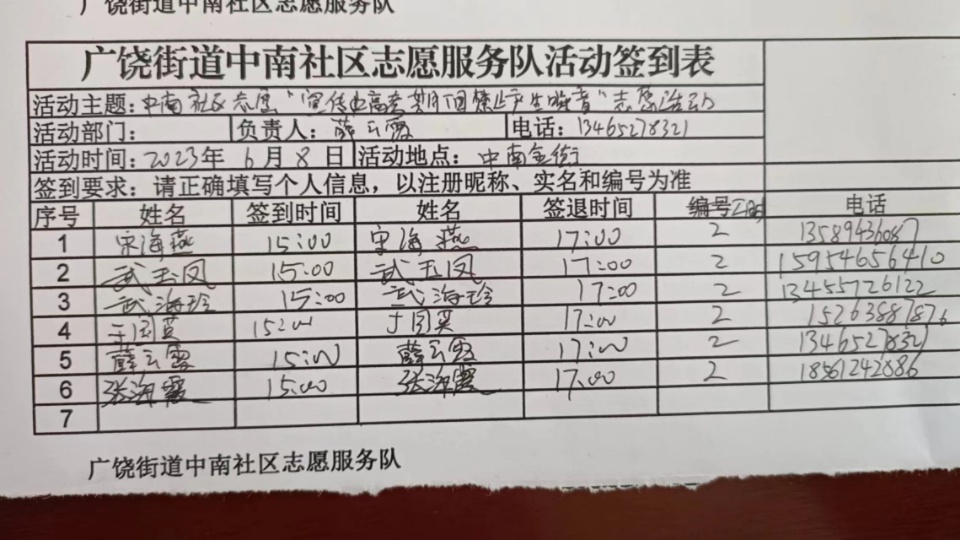 广饶街道中南社区志愿服务队
广饶街道中南社区志愿服务队活动签到表
活动主题：中南社区志愿"宣传中高考期间禁止产生噪音"志愿活动
活动部门： 负责人：薛云霞 电话：13465278321
活动时间：2023年6月8日 活动地点：中南金街
签到要求：请正确填写个人信息，以注册昵称、实名和编号为准
序号 姓名 签到时间 姓名 签退时间 编号工时 电话
1 宋海燕 15:00 宋海燕 17:00 2 13589436087
2 武玉凤 15:00 武玉凤 17:00 2 15954656410
3 武海珍 15:00 武海珍 17:00 2 13455726122
4 于国英 15:00 于国英 17:00 2 15263887876
5 薛云霞 15:00 薛云霞 17:00 2 13465278321
6 张海霞 15:00 张海霞 17:00 2 18561242886
7
广饶街道中南社区志愿服务队